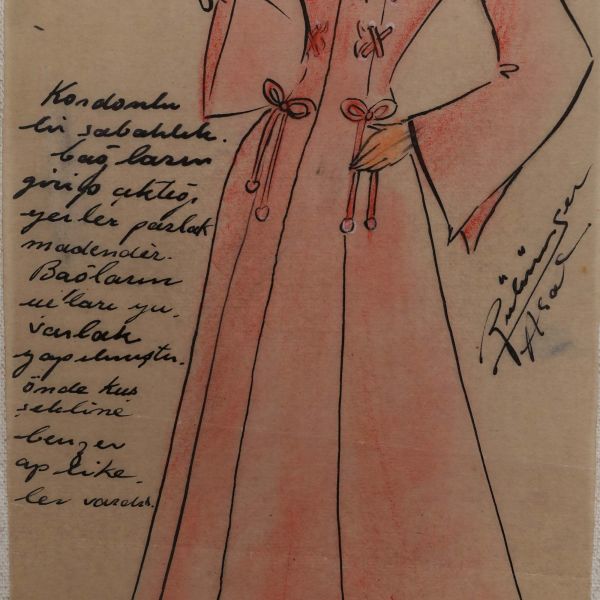 Kordonlu
bir sabahlık.
bağların
girip çıktığı
yerler parlak
madendir.
Bağların
uc'ları yu.
varlak
yapılmıştır.
önde kuş
şekline
benzer
aplike.
ler vardır.